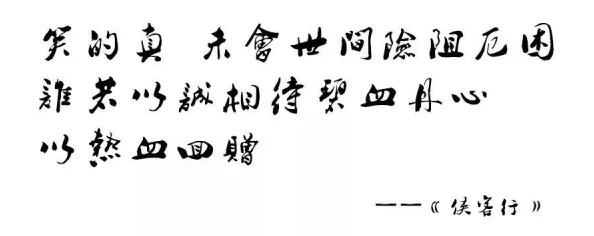 笑的真 未會世間險阻厄困
誰若以誠相待碧血丹心
以熱血回贈
——《俠客行》